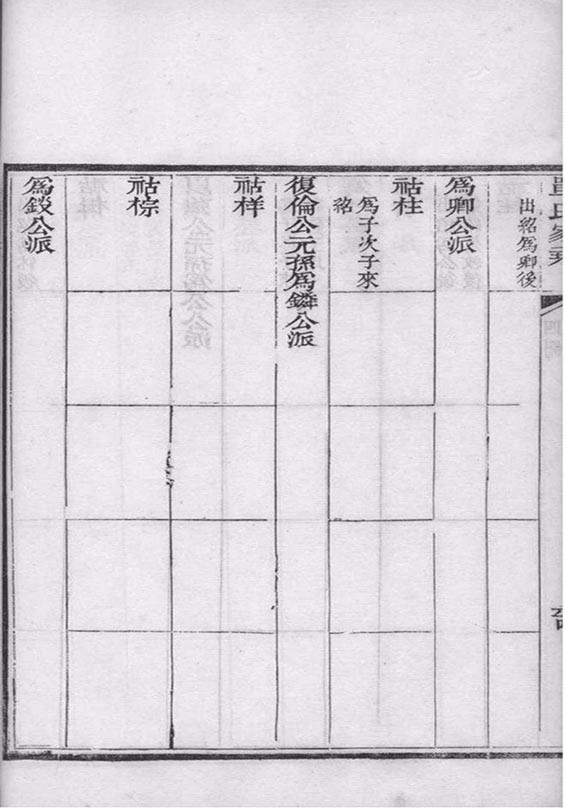 氏家乘
出紹爲卿後
爲卿公派
祜柱
爲子次子來
紹
復倫公元孫爲鏻公派
祜样
祜棕
爲錟公派